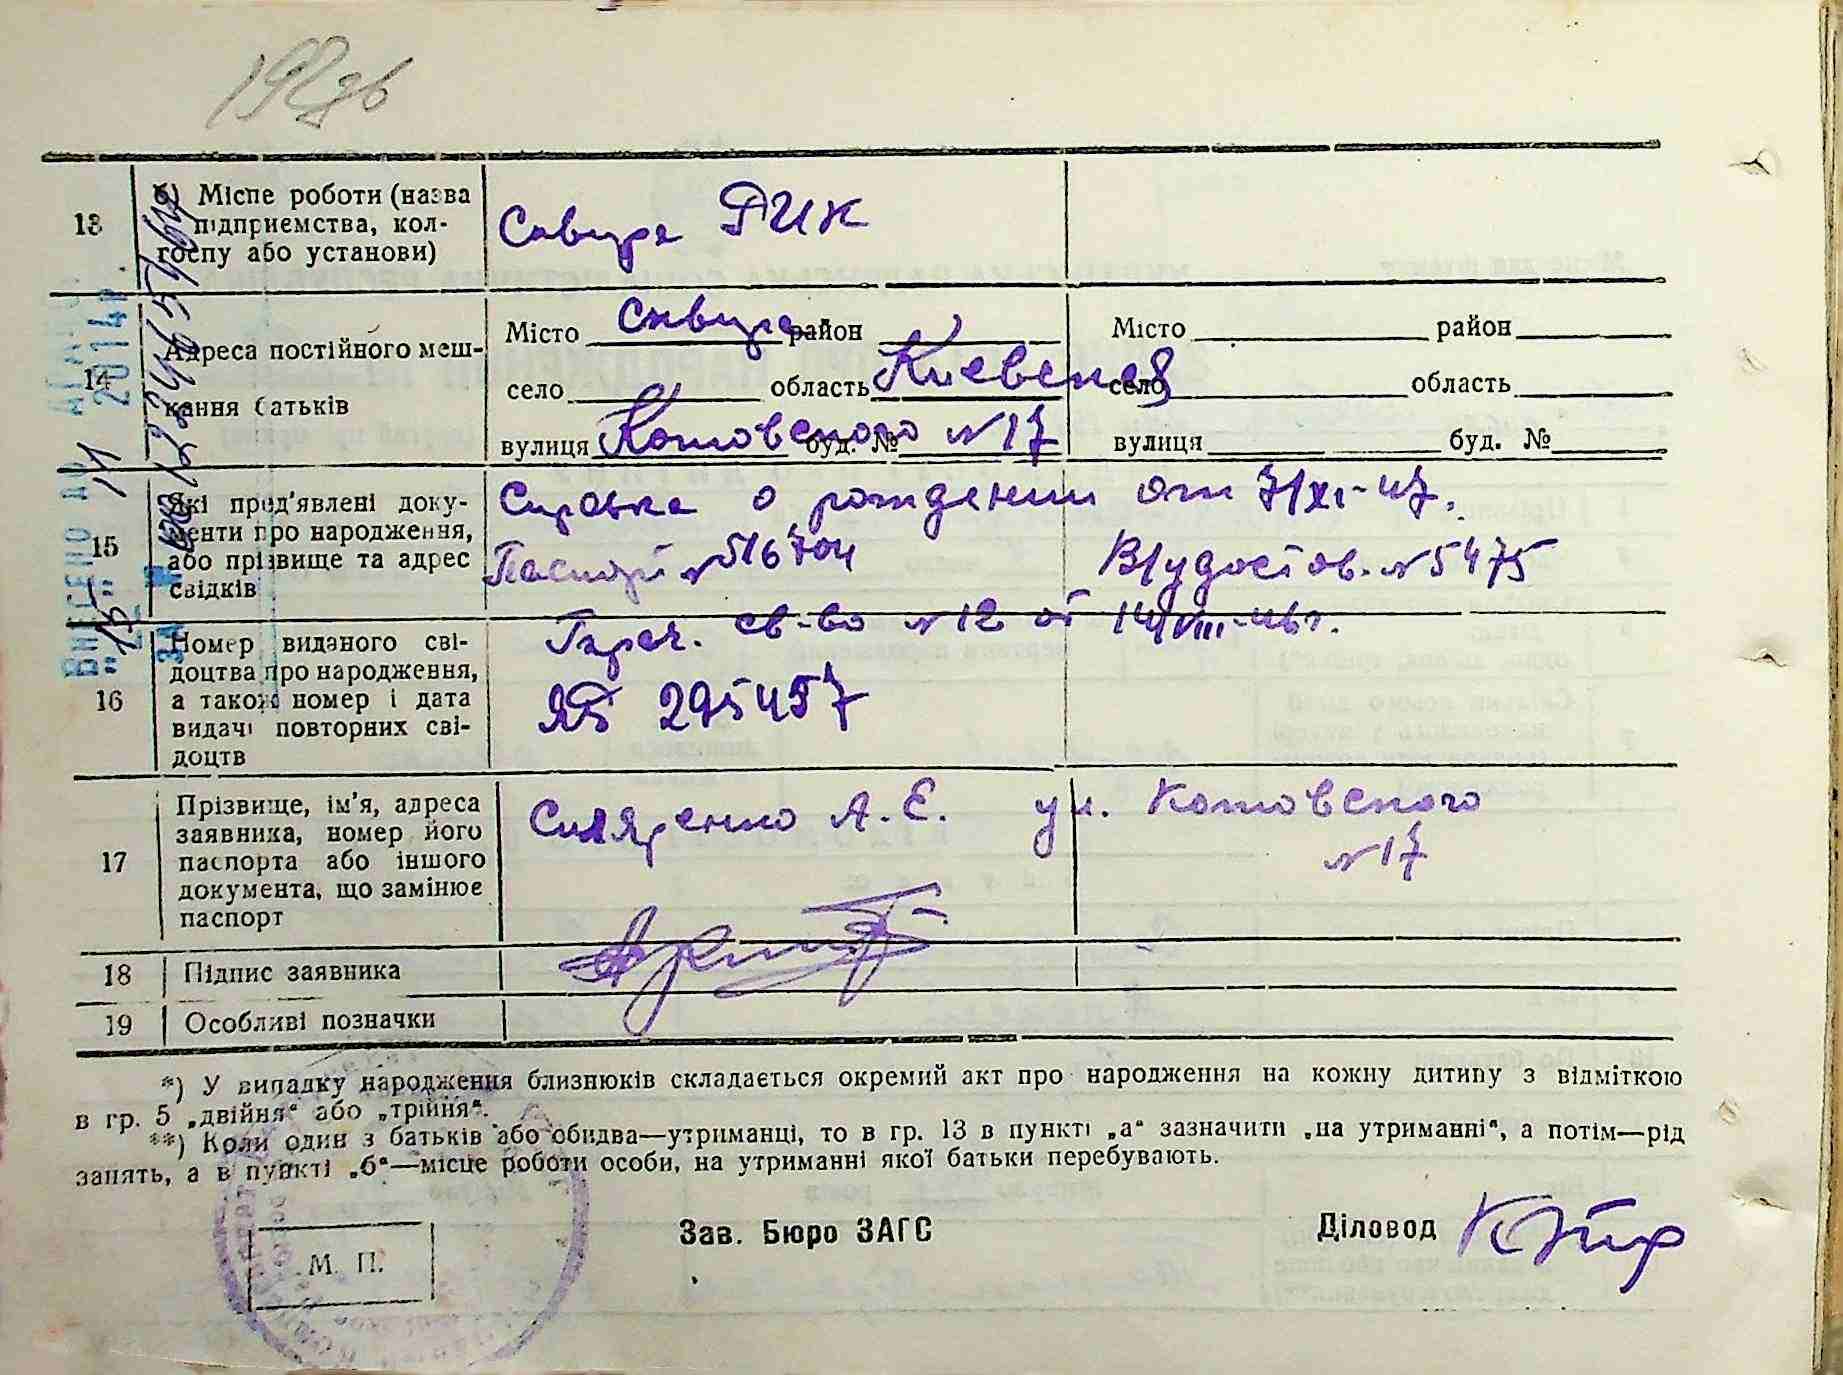 192зв
13
б) Місце роботи (назва
підприємства, кол-
госпу або установи)
Сквира РИК
14
Адреса постійного меш-
кання батьків
Місто Сквира район
село область Киевская
вулиця Котовского буд. № №17
Місто район
село область
вулиця буд. №
15
Які пред'явлені доку-
менти про народження,
або прізвище та адрес
свідків
Справка о рождении от 7/XI-47.
Паспорт №516704 В/удостов. №5475
Брач. св-во №12 от 14/VIII-46г.
16
Номер виданого сві-
доцтва про народження,
а також номер і дата
видачі повторних сві-
доцтв
ЯБ 295457
17
Прізвище, ім'я, адреса
заявника, номер його
паспорта або іншого
документа, що замінює
паспорт
Скляренко А. Е. ул. Котовского
№17
18
Підпис заявника
19
Особливі позначки
*) У випадку народження близнюків складається окремий акт про народження на кожну дитину з відміткою
в гр. 5 „двійня“ або „трійня“.
**) Коли один з батьків або обидва—утриманці, то в гр. 13 в пункті „а“ зазначити „на утриманні“, а потім—рід
занять, а в пункті „б“—місце роботи особи, на утриманні якої батьки перебувають.
М. П.
Зав. Бюро ЗАГС
Діловод
ВНЕСЕНО ДО ДРАЦС
"15" 11 2014р.
ЗА №